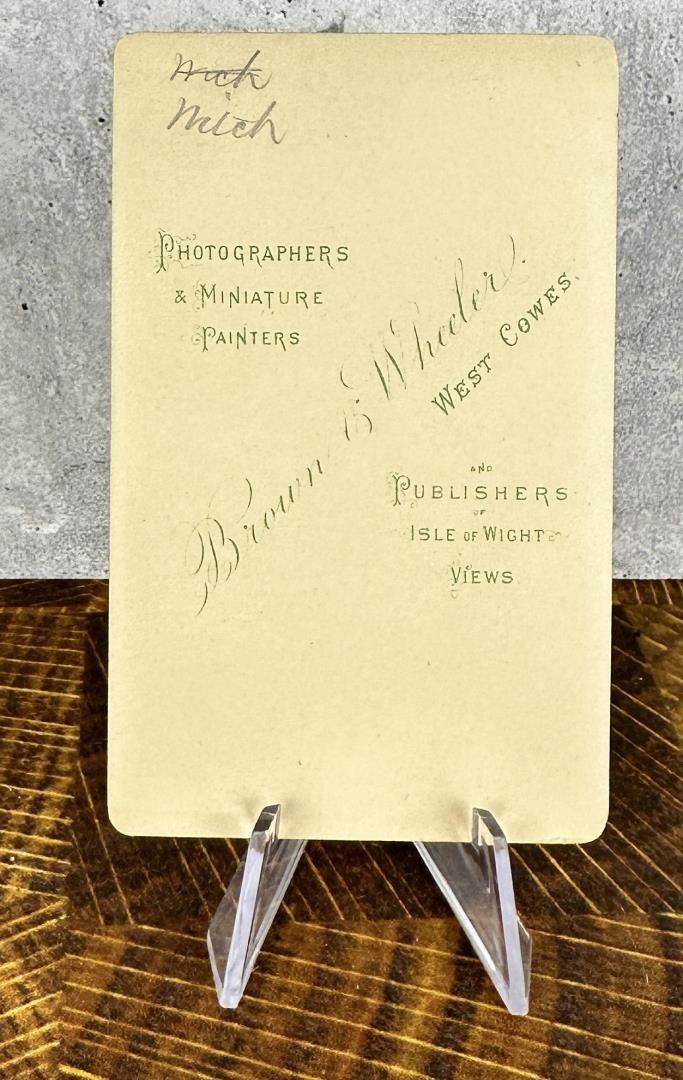 Mich
Mich
PHOTOGRAPHERS
& MINIATURE
PAINTERS
Brown & Wheeler.
WEST COWES.
AND
PUBLISHERS
OF
ISLE OF WIGHT
VIEWS